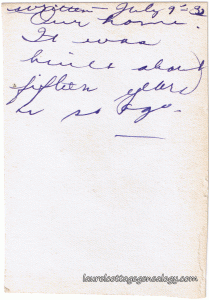 written – July 9 – 32
Our home.
It was
built about
fifteen years
or so ago.
laurelcottagegenealogy.com